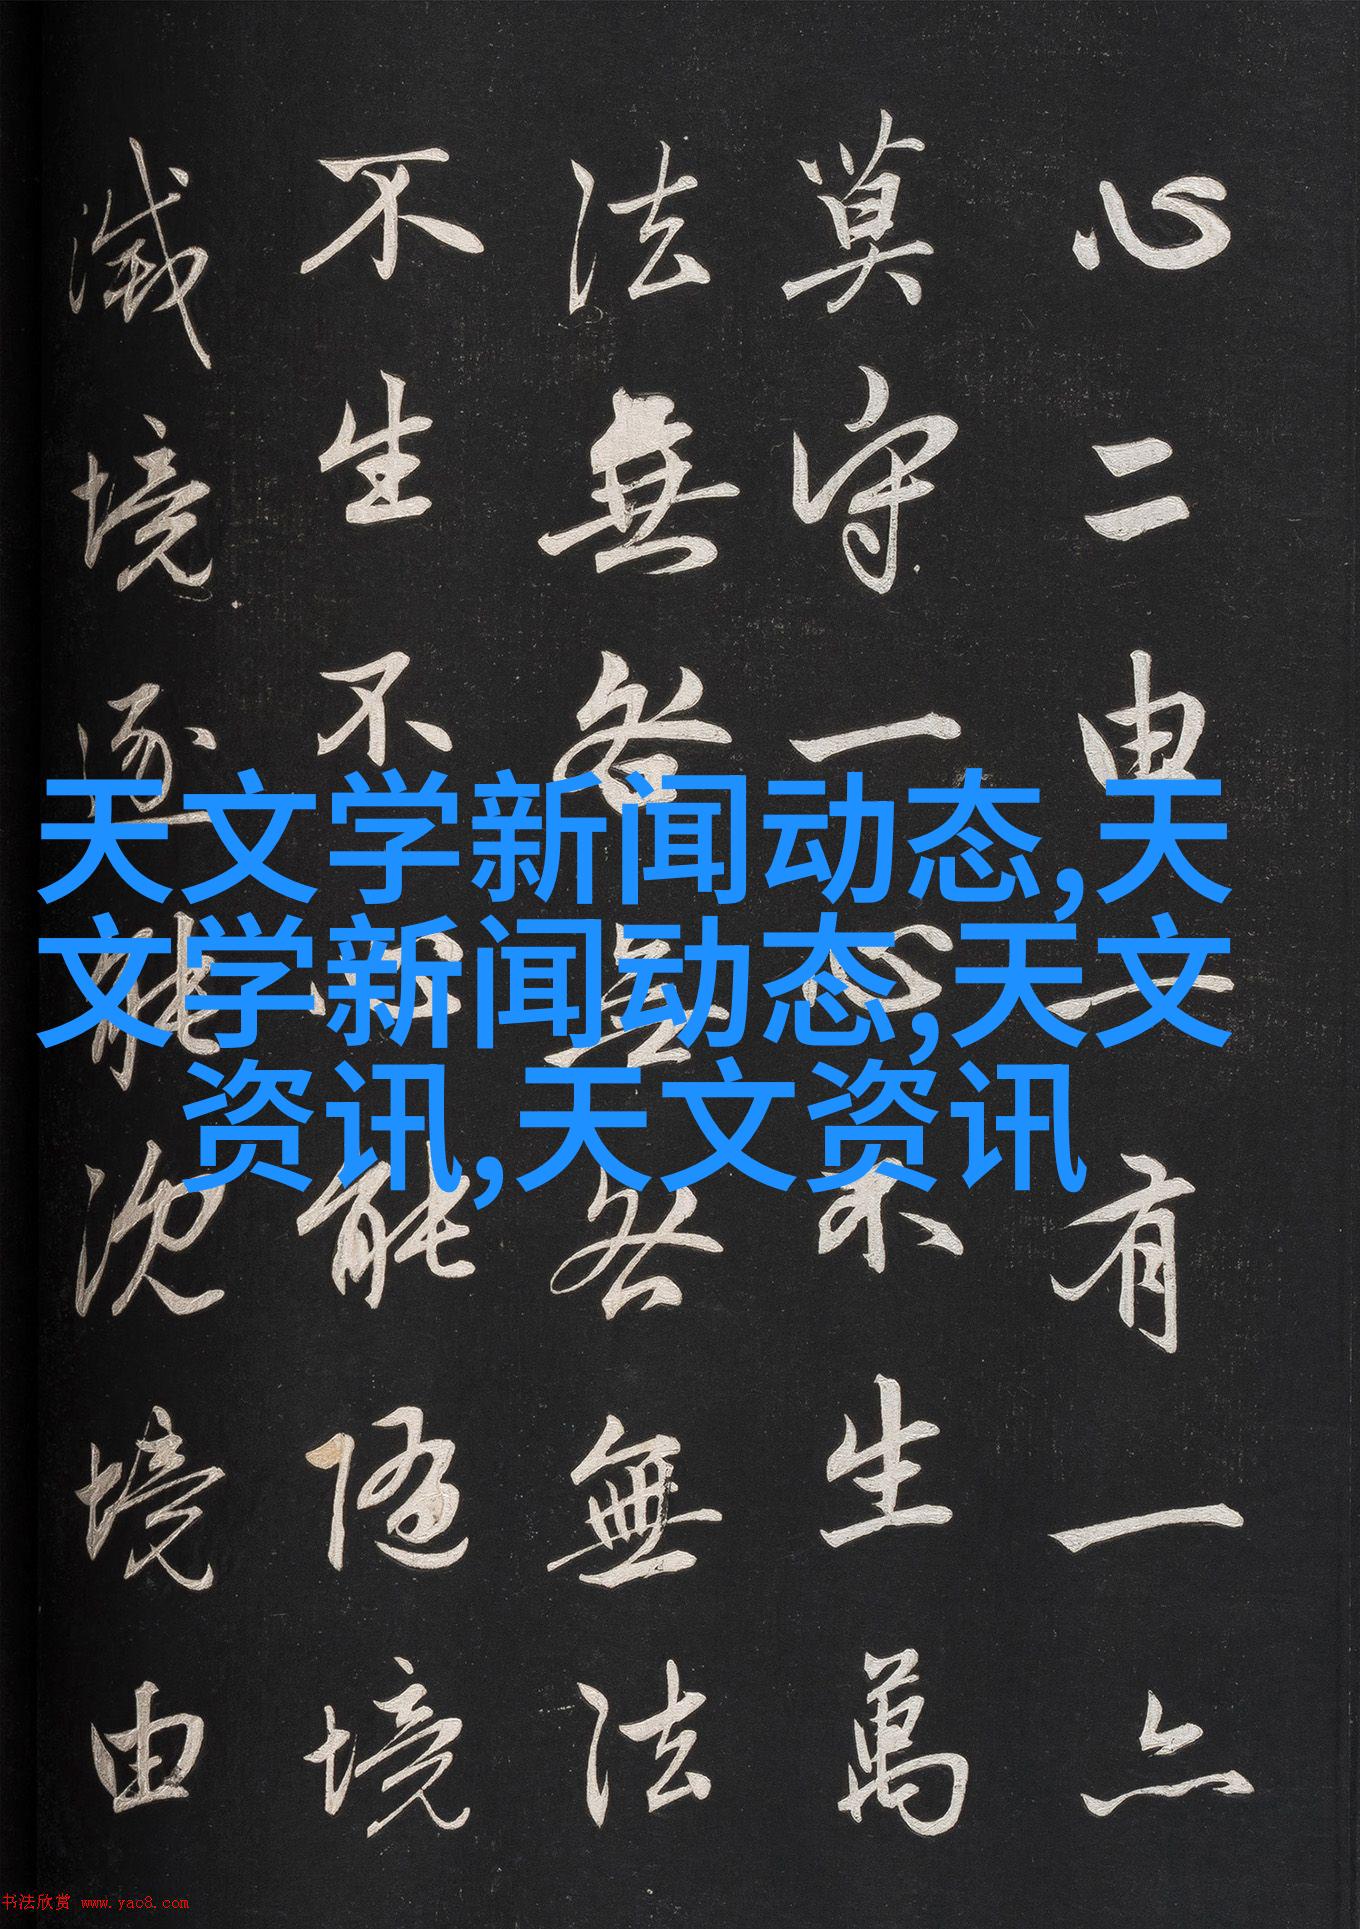 心二由一有一亦
莫守一心不生萬
法無咎無咎無法
不生不心能隨境
滅境逐能沉境由
天文学新闻动态,天
文学新闻动态,天文
资讯,天文资讯
书法欣赏 www.yac8.com